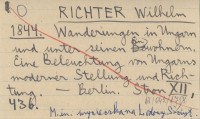 O RICHTER Wilhelm
1844. Wanderungen in Ungarn
und unter seinen Bewohnern.
Eine Beleuchtung von Ungarns
moderner Stellung und Rich-
tung. — Berlin. XII,
436.
M.in.